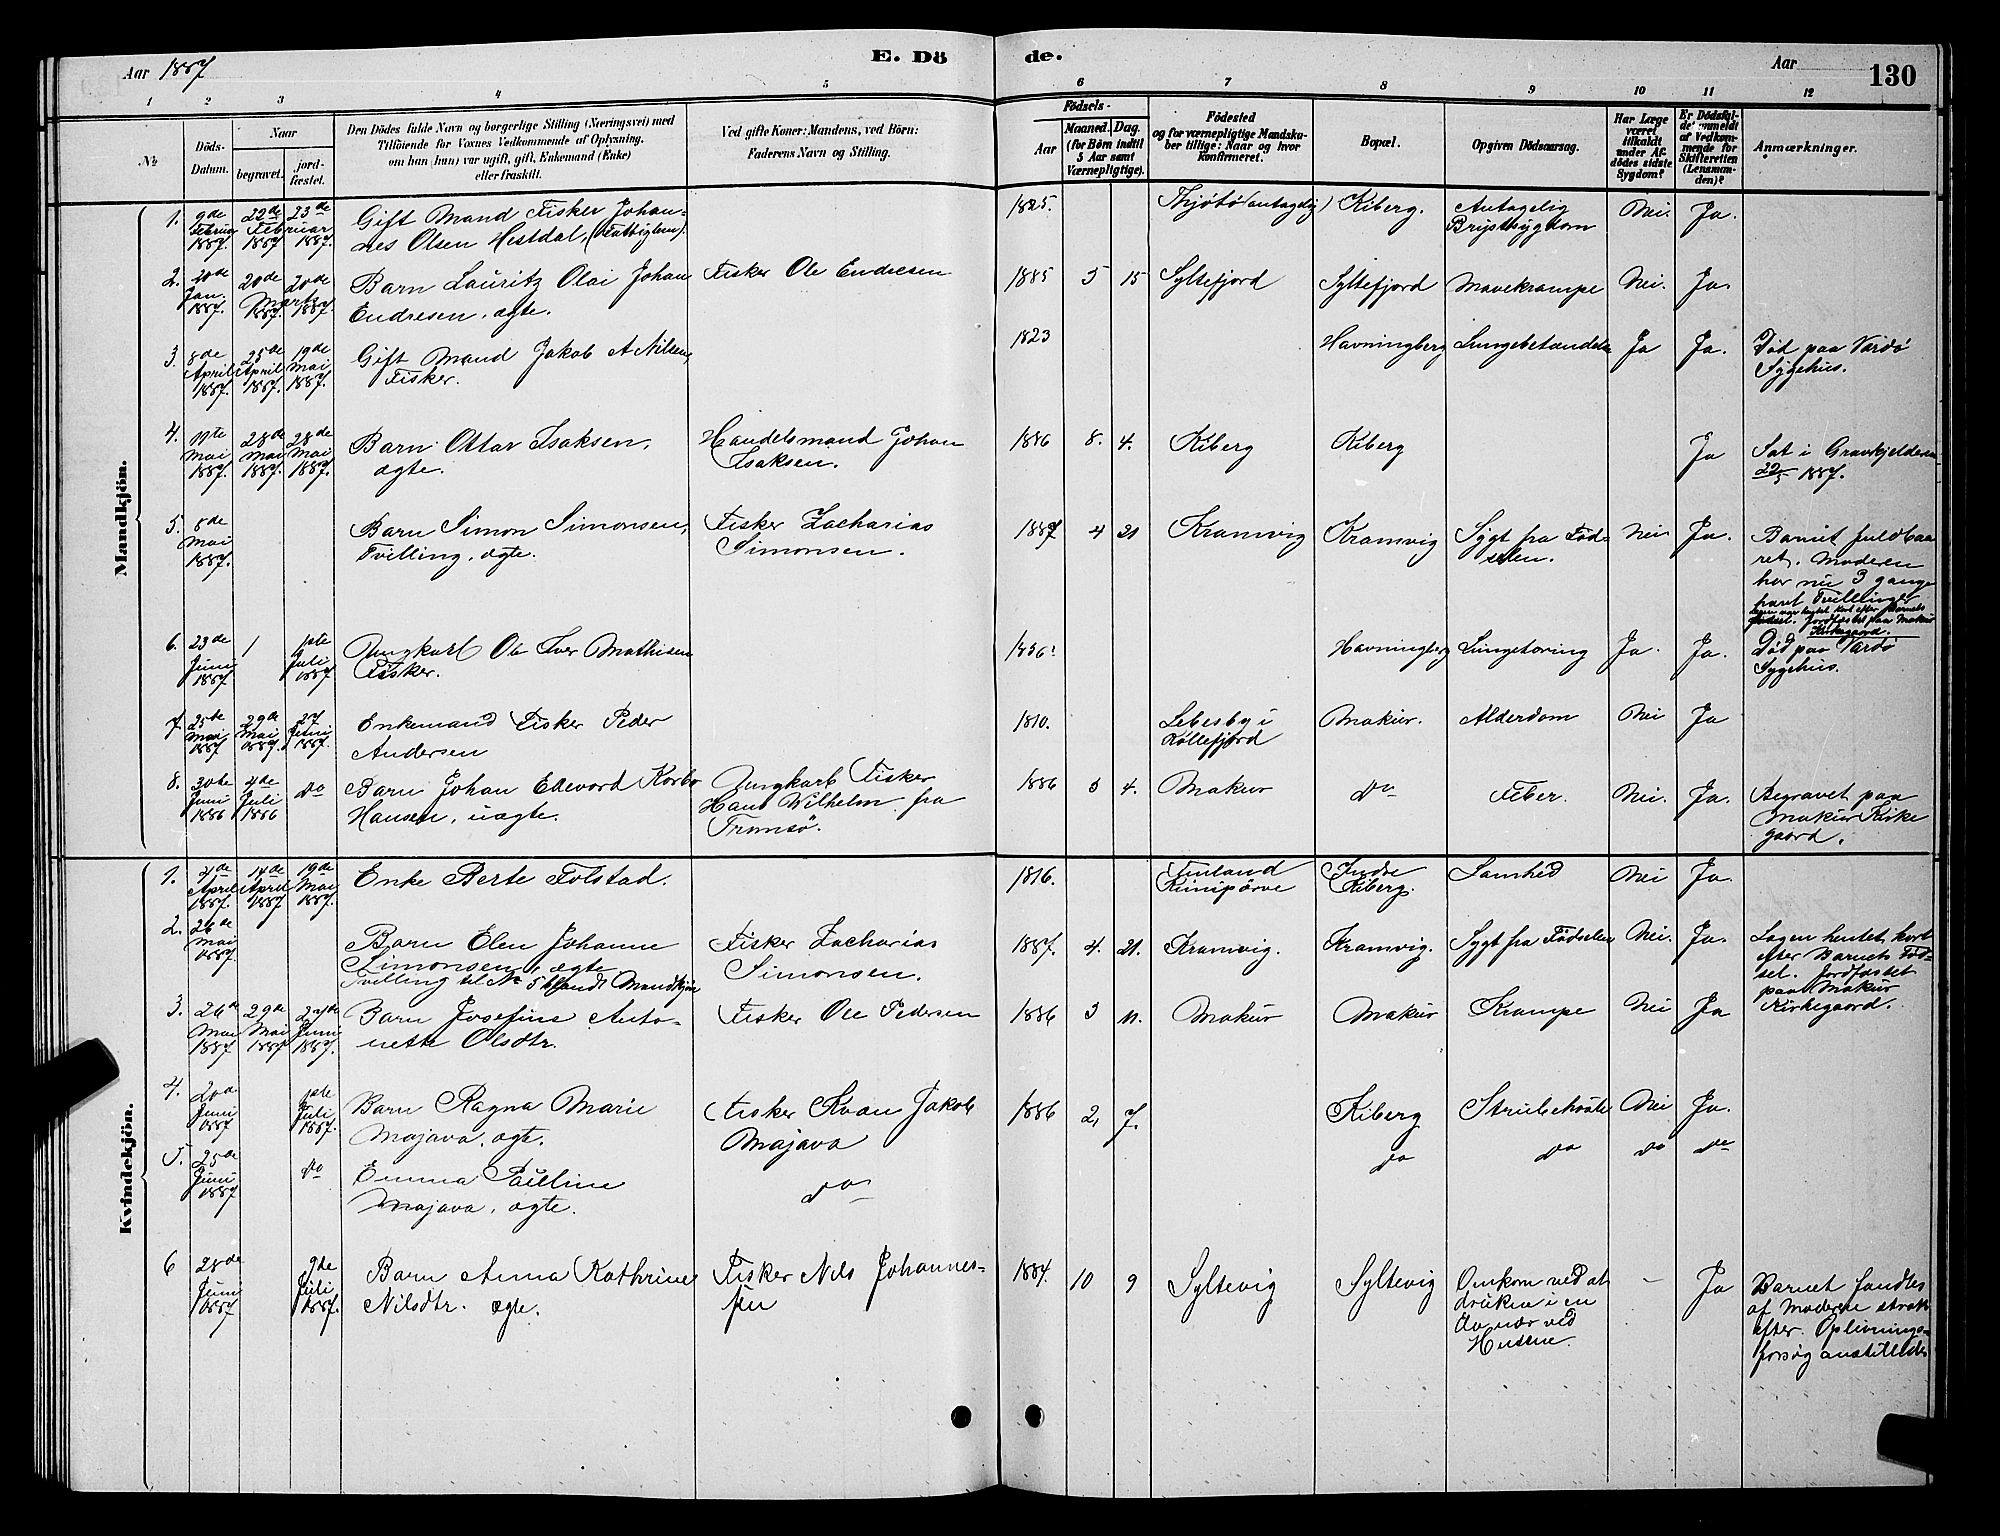 Aar 1887
E. Dö
de.
Aar
130
1 2 3 4 5 6 7 8 9 10 11 12
No
Döds-
Datum.
Naar
begravet.
jord-
fæstet.
Den Dödes fulde Navn og borgerlige Stilling (Næringsvei) med
Tilföiende for Voxnes Vedkommende af Oplysning,
om han (hun) var ugift, gift, Enkemand (Enke)
eller fraskilt.
Ved gifte Koner: Mandens, ved Börn:
Faderens Navn og Stilling.
Födsels-
Aar
Maaned. Dag.
(for Börn indtil
5 Aar samt
Værnepligtige).
Födested
og for værnepligtige Mandska-
ber tillige: Naar og hvor
konfirmeret.
Bopæl.
Opgiven Dödsaarsag.
Har Læge
været
tilkaldt
under Af-
dödes sidste
Sygdom?
Er Dödsfal-
det anmeldt
af Vedkom-
mende for
Skifteretten
(Lensman-
den)?
Anmærkninger.
Mandkjön.
1. 9de Februar 1887. 22de Februar 1887 23de 1887. Gift Mand Fisker Johan- 1825. Thjøtø (antagelig) Kiberg. Antagelig Nei. Ja.
nes Olsen Hestdal, (Fattiglem). Brystsygdom
2. 20de Jan. 1887. 20de Marts 1887. 20de 1887. Barn Lauritz Olai Johan Fisker Ole Endresen 1885 5 15 Syltefjord Syltefjord Mavekrampe Nei. Ja.
Endresen, ægte.
3. 8de April 1887. 25de April 1887. 19de Mai 1887. Gift Mand Jakob A Nilsen, 1823 Havningberg Lungebetændelse Ja Ja. Død paa Vardø
Fisker. Sygehus.
4. 11te Mai 1887. 28de Mai 1887. 28de Mai 1887. Barn Ottar Isaksen, Handelsmand Johan 1886 8. 4. Kiberg Kiberg Ja Sat i Gravkjelderen
ægte. Isaksen. 22/5 1887.
5. 8de Mai 1887. Barn Simon Simonsen, Fisker Zacharias 1887 4 21 Kramvig Kramvig Sygt fra Fød- Nei. Ja. Barnet fuldbaa
Tvilling, ægte. Simonsen. selen. ret. Moderen
har nu 3 gange
havt Tvillinger
Lægen var hentet kort efter Barnets
Fødsel. Jordfæstet paa Makur
Kirkegaard.
6. 23de Juni 1887 1 1ste Juli 1887 Ungkarl Ole Iver Mathisen Havningberg Lungetæring Ja. Ja. Død paa Vardø
Fisker. Sygehus.
7. 25de Mai 1887 29de Mai 1887. 27 Juni 1887. Enkemand Fisker Peder 1810. Lebesby i Makur. Alderdom Nei Ja
Andersen Kollefjord
8. 30te Juni 1886 4de Juli 1886 do Barn Johan Edevard Korbo Ungkarl Fisker 1886 5 4. Makur do Feber. Nei. Ja. Begravet paa
Hansen, uægte. Hans Wilhelm fra Makur Kirke
Tromsø. gaard.
Kvindekjön.
1. 4de April 1887. 14de April 1887 19de Mai 1887. Enke Berte Tolstad. 1816. Finland Indre Lamhed Nei Ja.
Kiberg.
2. 26de Mai 1887 Barn Elen Johanne Fisker Zacharias 1887. 4. 21. Kramvig. Kramvig. Sygt fra Fødselen Nei. Ja. Lægen hentet kort
Simonsen, ægte Simonsen. efter Barnets Fød-
Tvilling til No 5 blandt Mandkjøn sel. Jordfæstet
paa Makur
Kirkegaard.
3. 26de Mai 1887 29de Mai 1887 27de Juni 1887. Barn Josefine Anto- Fisker Ole Pedersen 1886 3 11. Makur Makur Krampe Nei Ja
nette Olsdtr.
4. 20de Juni 1887 1ste Juli 1887. Barn Ragna Marie Fisker Kvæn Jakob 1886 2, 7. Kiberg Strubehoste Nei Ja.
Majava, ægte. Majava
5. 25de Juni 1887 do Emma Pauline do do do do do
Majava, ægte.
6 28de Juni 1887 9de Juli 1887. Barn Anna Kathrine Fisker Nils Johannes- 1884. 10 9 Syltevig Syltevig Omkom ved at - Ja Barnet fandtes
Nilsdtr. ægte. sen drukne i en af Moderen strax
ved efter. Oplivnings-
Husene. forsøg anstilledes